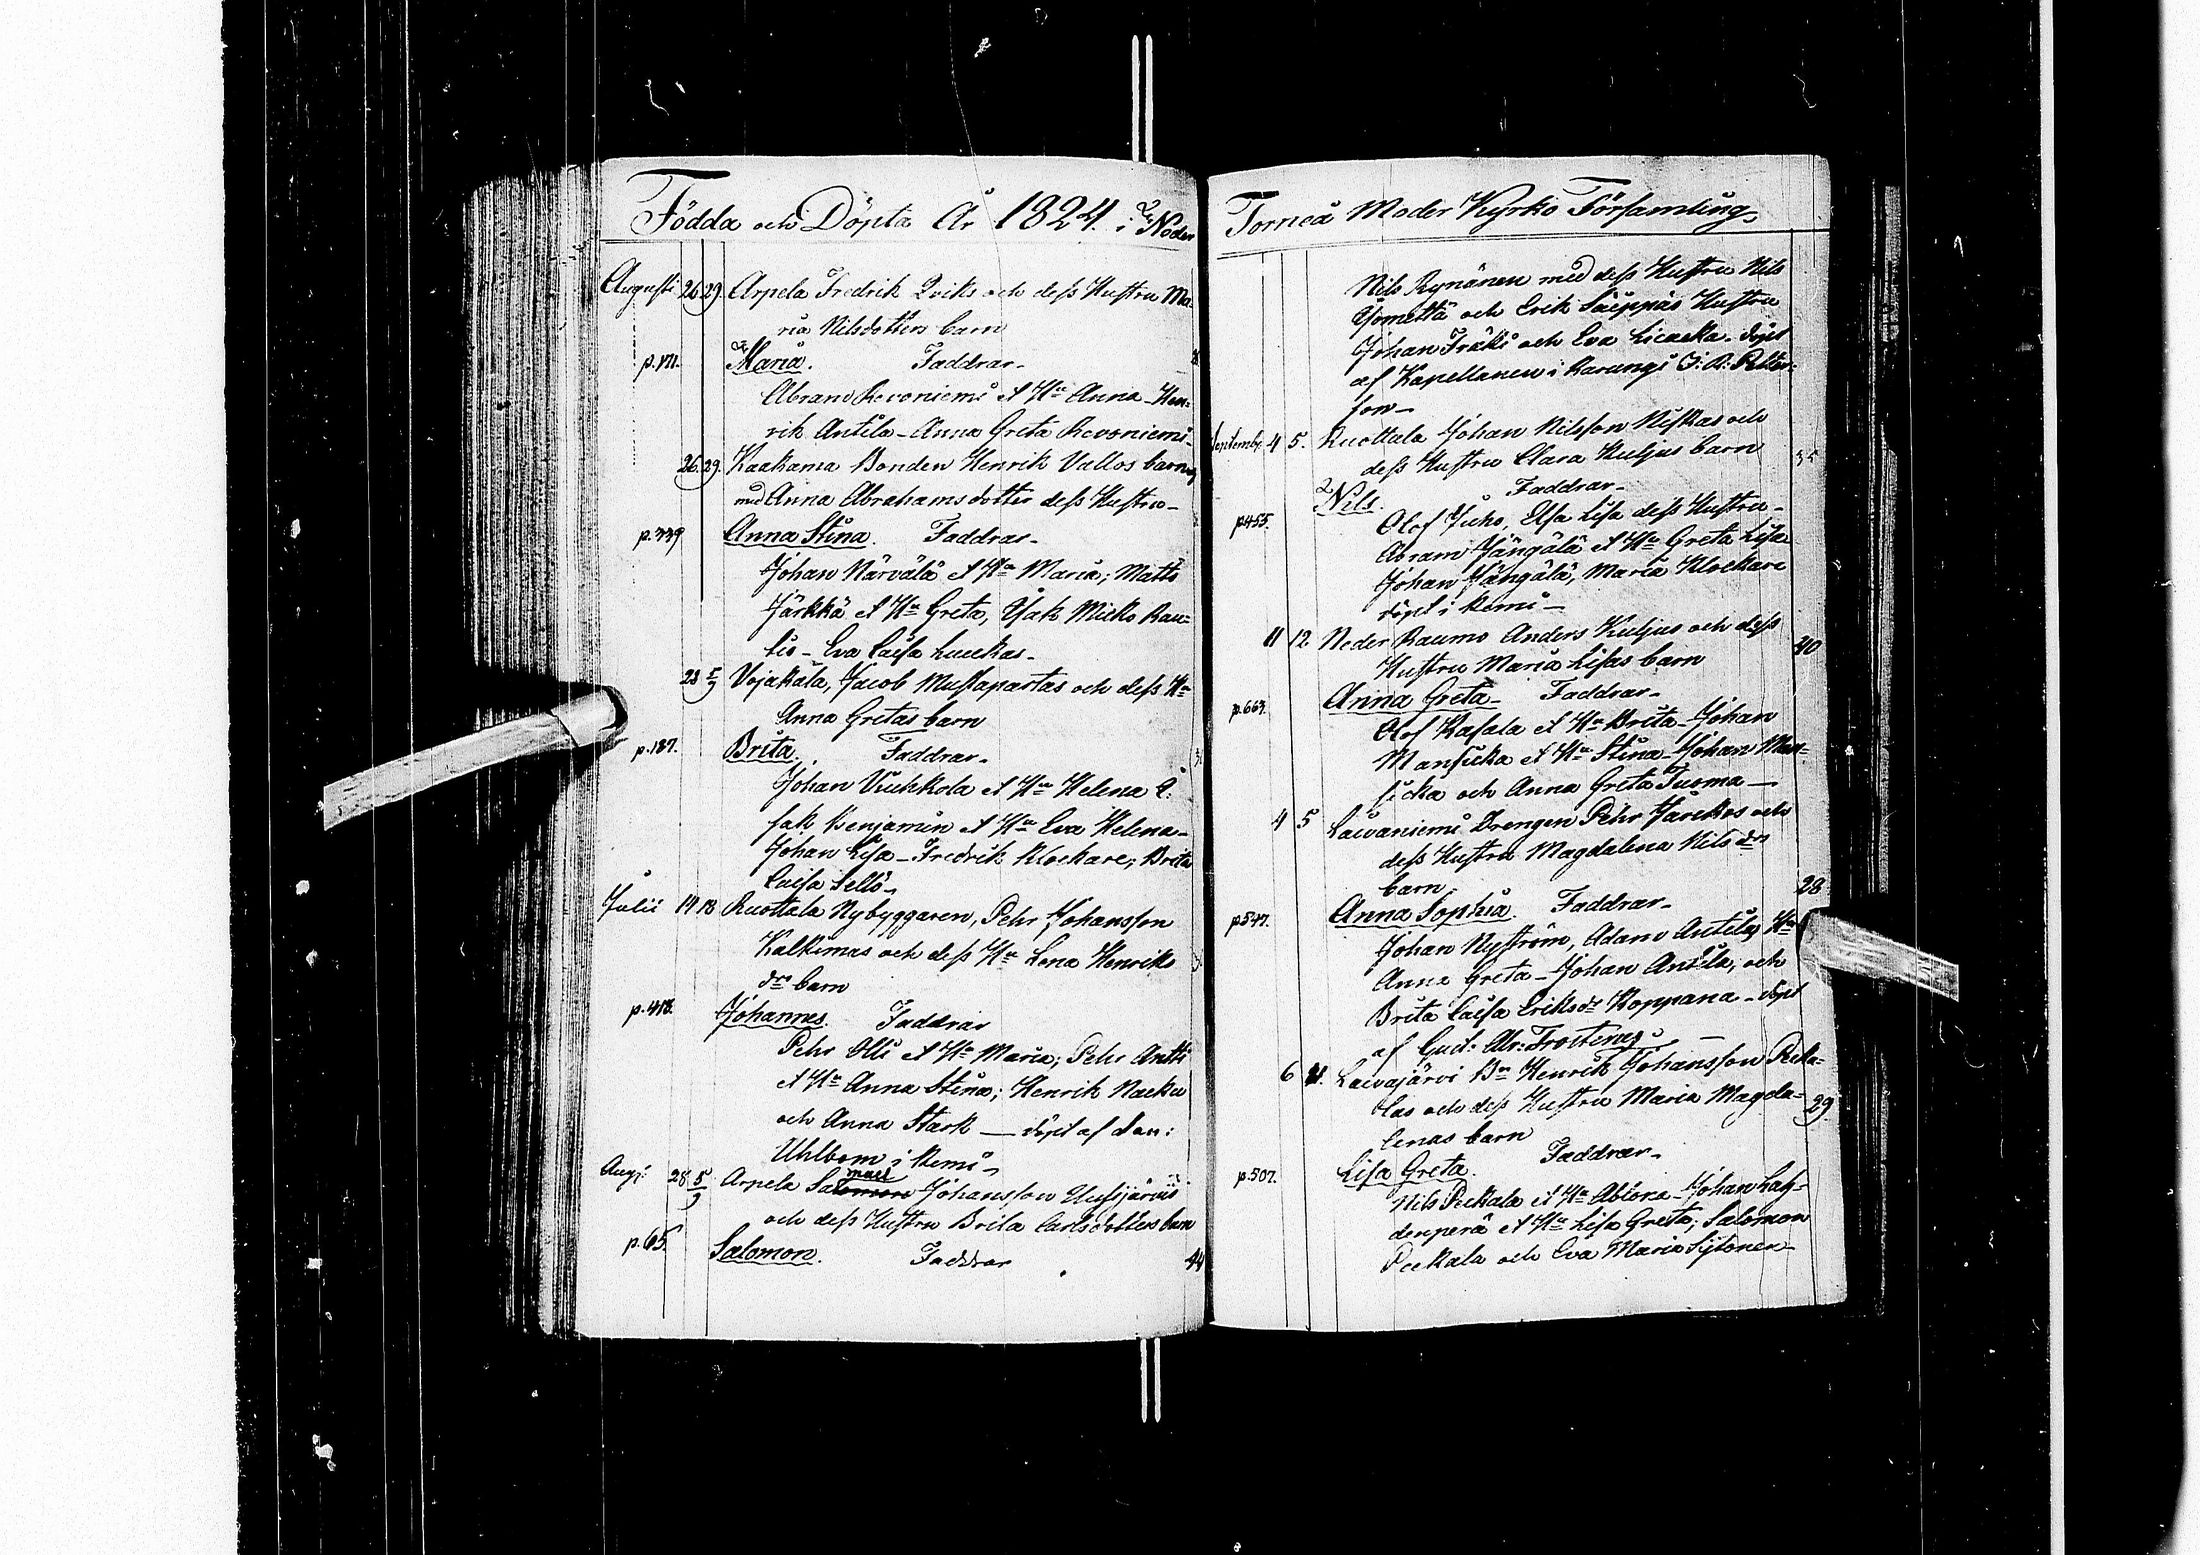 Födda och Döpta År 1824. i Neder
Augusti 26 29. Arpela Fredrik Qviks och dess Hustru Ma-
ria Nilsdotters barn
p.171. Maria. Faddrar-
Abram Revoniemi et Hu Anna - Hen=
rik Antila - Anna Greta Revoniemi-
26. 29. Kaakama Bonden Henrik Vallos barn
med Anna Abrahamsdotter dess Hustru-
p.339 Anna Stina. Faddrar-
Johan Närvälä et Hu Maria; Matts
Järkkä et Hu Greta, Isak Micko Rau=
tio - Eva Caisa Luukas-
28 5/9 Vojakala, Jacob Mustapartas och dess Hu
Anna Gretas barn
p.187. Brita. Faddrar-
Johan Viuhkola et Hu Helena I:
sak Benjamin et Hu Eva Helena-
Johan Lisa - Fredrik Klockare, Brita
Caisa Sellö-
Julii 14 18 Ruottala Nybyggaren, Pehr Johansson
Kalkimas och dess Hu Lena Henriks
dr barn
p.413. Johannes. Faddrar
Pehr Olli et Hu Maria; Pehr Antti
et Hu Anna Stina; Henrik Naeku
och Anna Stark — döpt af
Uhlbom i Kemi-
Aug: 28 5/9 Arpela Salomon mael Johansson Uusijärvis
och dess Hustru Brita Carlsdotters barn
p.65. Salomon. Faddrar 44
Torneå Moder Kyrko Församling
Nils Rynänen med dess Hustru Nils
och Erik Säippäs Hustru
Johan Fräki och Eva Licaeka. döpt
af Kapellanen i Karungi J: R: Petter=
son-
Septembr 4 5. Ruottala Johan Nilsson Niskas och
dess Hustru Clara Kuljus barn 35
Nils. Faddrar-
p455. Olof Juho, Elsa Lisa dess Hustru-
Abram Jängälä et Hu Greta Lisa
Johan Jängälä, Maria Klockare
döpt i Kemi-
11 12 Neder Raumo Anders Kuljus och dess
Hustru Maria Lisas barn 40
p.663. Anna Greta- Faddrar-
Olof Kasala et Hu Brita - Johan
Mansicka et Hu Stina - Johan Man=
sicka och Anna Greta Tuoma -
4 5 Laivaniemi Drengen Pehr Jareckos och
dess Hustru Magdalena Nils drs
barn. 28
p.547. Anna Sophia. Faddrar-
Johan Nyström, Adam Antilas Hu
Anna Greta - Johan Antila, och
Brita Caisa Eriksdr Koppana - döpt
af Gust: Abr: Frosterus -
6 11. Laivajärvi Bn Henrik Johansson Pecka=
las och dess Hustru Maria Magda= 29.
lenas barn
p.507. Lisa Greta. Faddrar-
Nils Peckala et Hu Abiora - Johan Lah=
denperä et Hu Lisa Greta; Salomon
Peckala och Eva Maria Sytonen-